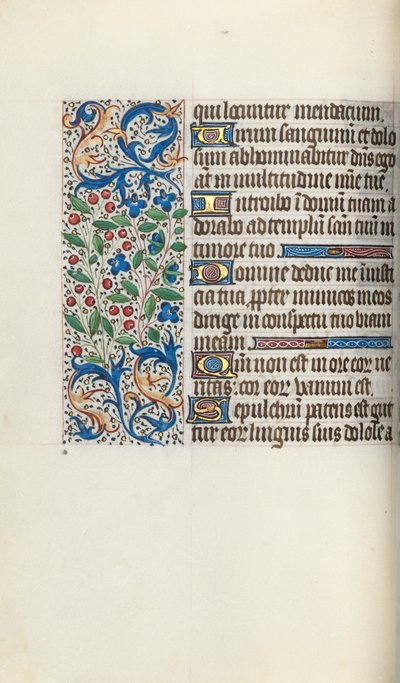 qui locuntur mendacium.
Virum sanguinum et dolo
sum abhominabitur dns ego
at in multitudine mie tue.
Introibo i domum tuam a
dorabo ad templum san tuum in
timore tuo
Domine deduc me in iusti
cia tua. ppter inimicos meos
dirige in conspectu tuo viam
meam.
Qm non est in ore eor ve
ritas: cor eor vanum est.
Sepulchrum patens est gut
tur eor linguis suis dolose a